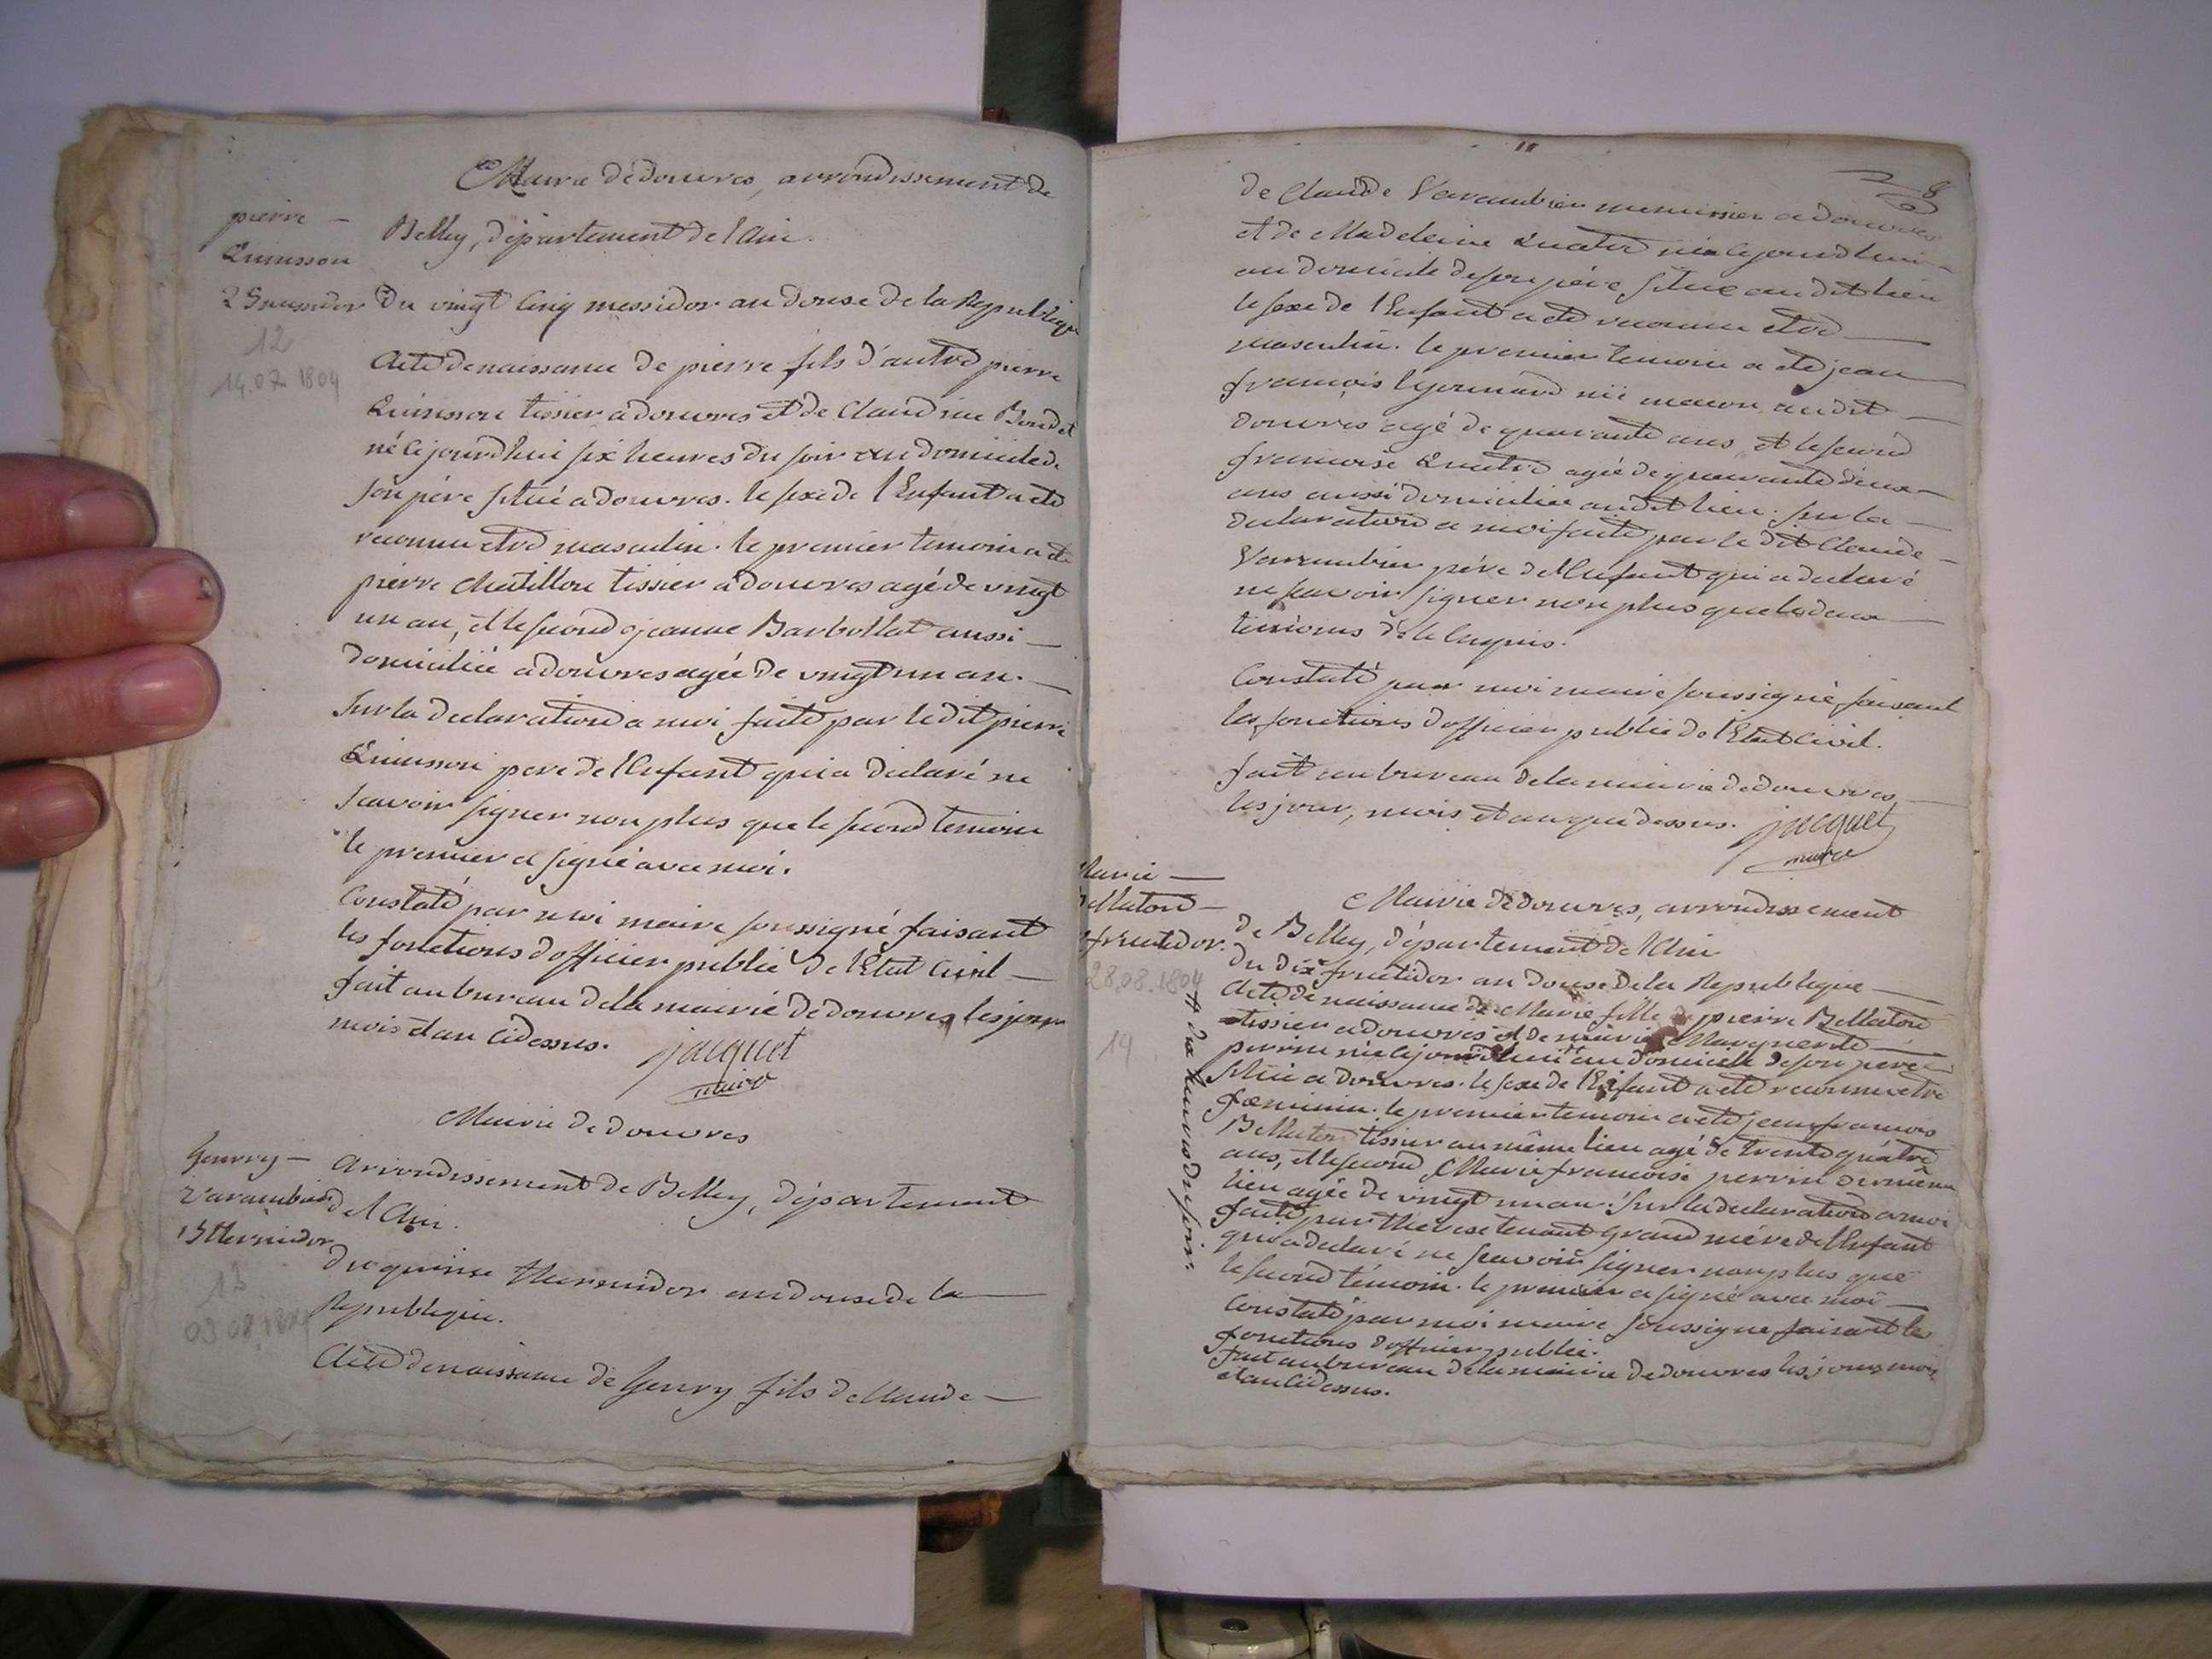 Mairie de douvres, arrondissement de
pierre —
Quinsson
Belley, département de l'Ain.
25 messidor
12
14.07 1804
Du vingt cinq messidor an douse de la Republique
Acte de naissance de pierre fils d'autre pierre
Quinsson tissier a douvres et de Claudine Bondet
né cejourdhui six heures du soir au domicile de
son père situé a douvres. le sexe de l'Enfant a eté
reconnu etre masculin. le premier temoin a eté
pierre Chatillon tissier a douvres agé de vingt
un an, et le second jeanne Barbollat aussi —
domiciliée a douvres agée de vingt un an. —
Sur la declaration a moi faite par le dit pierre
Quinsson pere de l'Enfant qui a declaré ne
scavoir signer non plus que le second temoin
le premier a signé avec moi.
Constaté par moi maire soussigné faisant
les fonctions d'officier public de l'Etat Civil —
fait au bureau de la mairie de douvres les jour
mois et an cidessus.
jacquet
maire
Mairie de douvres
Genvry —
Varambier
15 thermidor
13
03 08 1804
arrondissement de Belley, département
de l'Ain.
Du quinse thermidor an douse de la —
Republique.
Acte de naissance de Genvry fils de Claude —
8
de Claude Varambier menuisier a douvres
et de Madeleine Quatre née cejourdhui —
au domicile de son père situé au dit lieu
le sexe de l'Enfant a eté reconnu etre —
masculin. le premier temoin a eté jean —
françois macon au dit —
douvres agé de quarante ans et le second
françoise Quatre agée de quarante deux —
ans aussi domiciliée au dit lieu. sur la —
declaration a moi faite par le dit Claude —
Varambier père de l'Enfant qui a declaré
ne scavoir signer non plus que les deux —
temoins de le enquis.
Constaté par moi maire soussigné faisant
les fonctions d'officier public de l'Etat Civil.
fait au bureau de la mairie de douvres, —
les jour, mois et an que dessus. jacquet
maire
Marie —
Bellaton —
fructidor
28.08.1804
14
Mairie de douvres, arrondissement
de Belley, département de l'Ain
du dix fructidor an douse de la Republique —
Acte de naissance de Marie fille de pierre Bellaton
tissier a douvres et de Marguerite —
perrin née cejourdhui †† au domicile de son père —
situé a douvres. le sexe de l'Enfant a eté reconnu etre
fœminin. le premier temoin a eté jean françois
Bellaton tissier au même lieu agé de trente quatre
ans, et le second Marie françoise perrin du même
lieu agée de vingt un an. Sur la declaration a moi
faite par therese tenant grand mère de l'Enfant
qui a declaré ne scavoir signer non plus que
le second temoin. le premier a signé avec moi —
Constaté par moi maire soussigné faisant les
fonctions d'officier public.
fait au bureau de la mairie de douvres les jour, mois
et an cidessus.
†† dix heures du soir.